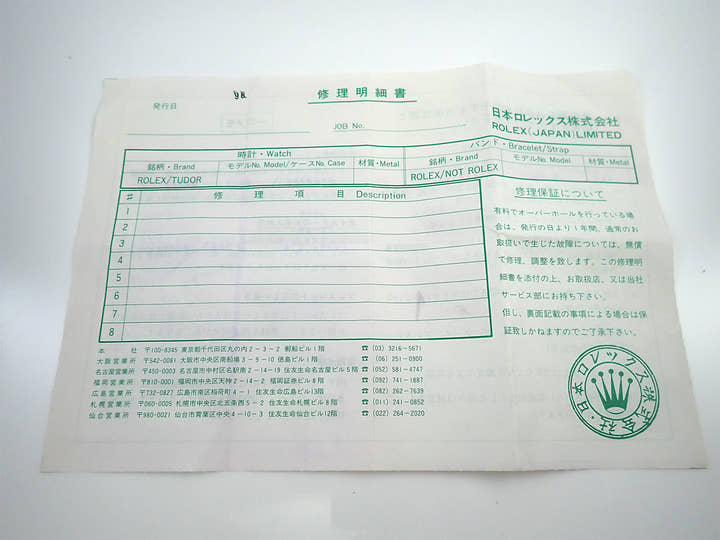 修理明細書
発行日
98
JOB No.
日本ロレックス株式会社
ROLEX(JAPAN)LIMITED
時計・Watch
バンド・Bracelet/Strap
銘柄・Brand
モデルNo. Model/ケースNo. Case
材質・Metal
銘柄・Brand
モデルNo. Model
材質・Metal
ROLEX/TUDOR
ROLEX/NOT ROLEX
#
修理項目 Description
1
2
3
4
5
6
7
8
修理保証について
有料でオーバーホールを行っている場
合は、発行の日より1年間、通常のお
取扱いで生じた故障については、無償
で修理、調整を致します。この修理明
細書を添付の上、お取扱店、又は当社
サービス部にお持ち下さい。
但し、裏面記載の事項による場合は保
証致しかねますのでご了承下さい。
本社 〒100-8345 東京都千代田区丸の内2-3-2 郵船ビル1階 ☎(03) 3216-5671
大阪営業所 〒542-0081 大阪市中央区南船場3-9-10 徳島ビル1階 ☎(06) 251-0900
名古屋営業所 〒450-0003 名古屋市中村区名駅南2-14-19 住友生命名古屋ビル5階 ☎(052) 581-4747
福岡営業所 〒810-0001 福岡市中央区天神2-14-2 福岡証券ビル8階 ☎(092) 741-1887
広島営業所 〒732-0827 広島市南区稲荷町4-1 住友生命広島ビル13階 ☎(082) 262-7639
札幌営業所 〒060-0005 札幌市中央区北五条西5-2 住友生命札幌ビル8階 ☎(011) 241-0852
仙台営業所 〒980-0021 仙台市青葉区中央4-10-3 住友生命仙台ビル12階 ☎(022) 264-2020
日本ロレックス株式会社・